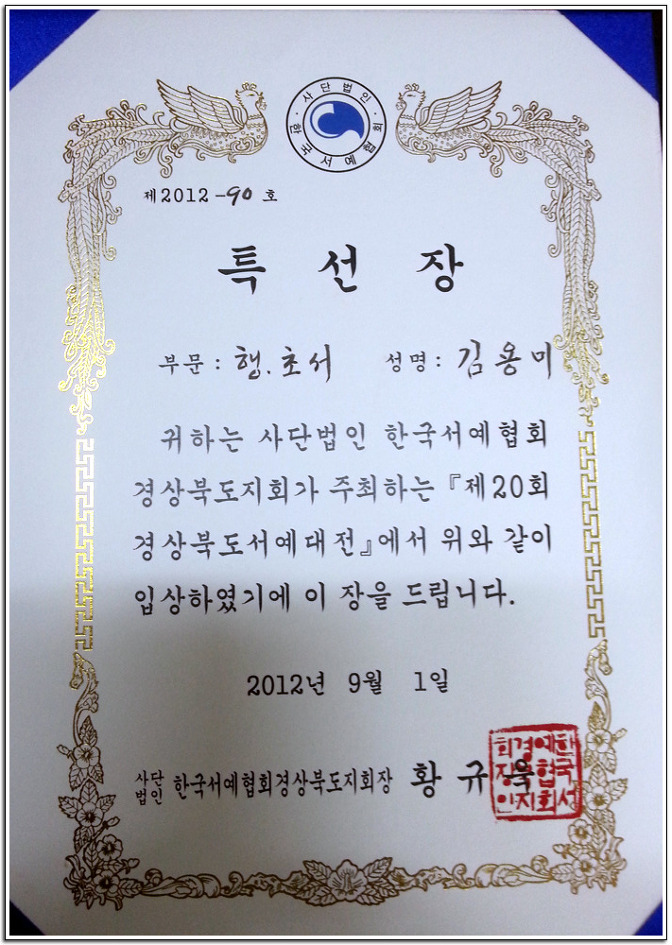 사단법인
한국서예협회
제2012-90호
특선장
부문 : 행.초서 성명 : 김용미
귀하는 사단법인 한국서예협회
경상북도지회가 주최하는 『제20회
경상북도서예대전』에서 위와 같이
입상하였기에 이 장을 드립니다.
2012년 9월 1일
사단법인 한국서예협회경상북도지회장 황규욱